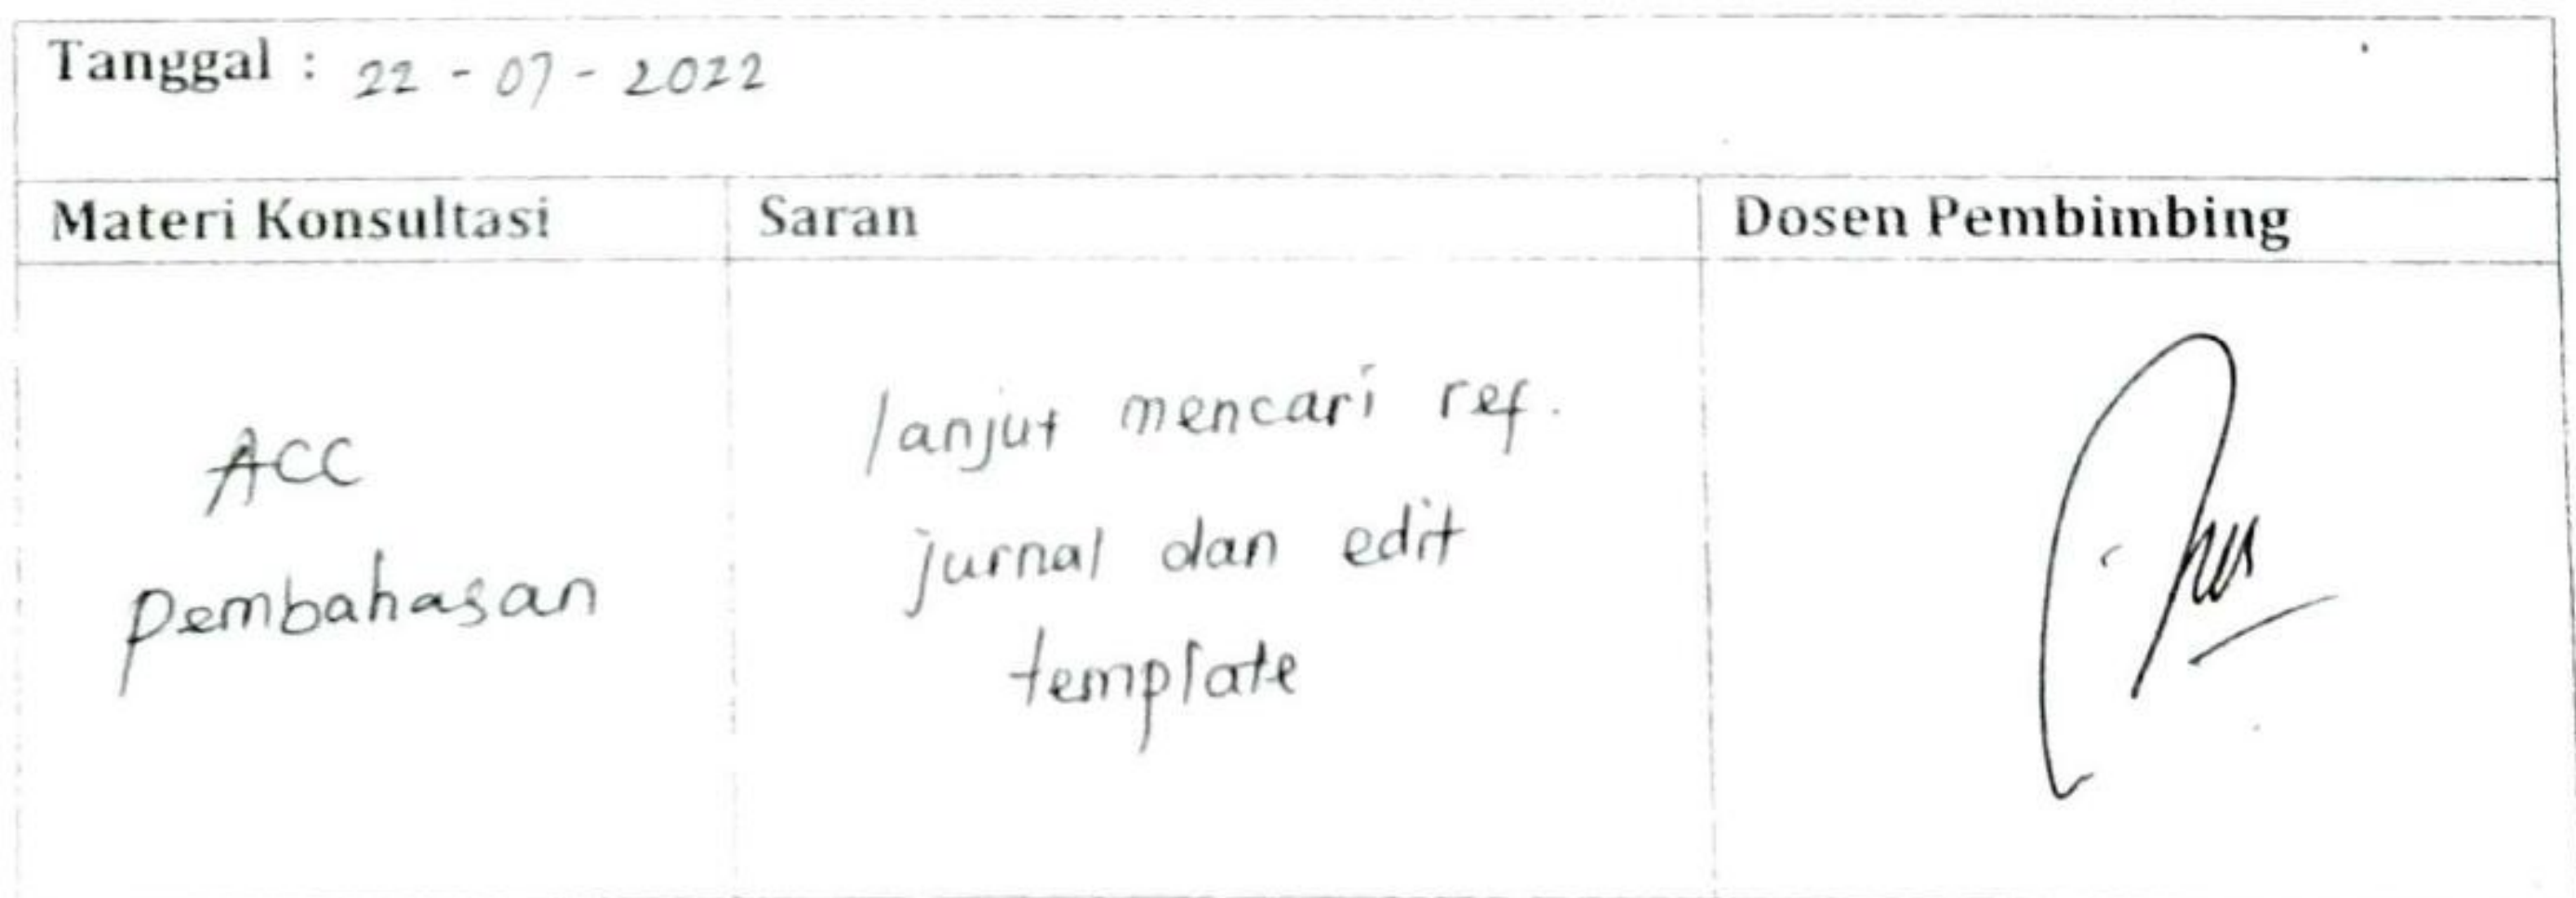 Tanggal : 22 - 07 - 2022
Materi Konsultasi
Saran
Dosen Pembimbing
ACC
pembahasan
lanjut mencari ref.
jurnal dan edit
template